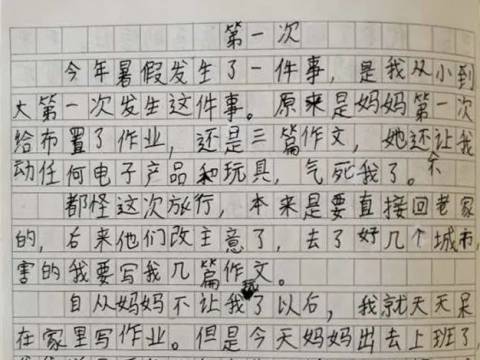 第一次
今年暑假发生了一件事，是我从小到
大第一次发生这件事。原来是妈妈第一次
给布置了作业，还是三篇作文，她还让我
不
动任何电子产品和玩具，气死我了。
都怪这次旅行，本来是要直接回老家
的，后来他们改主意了，去了好几个城市，
害的我要写我几篇作文。
自从妈妈不让我了以后，我就天天呆
在家里写作业。但是今天妈妈出去上班了，